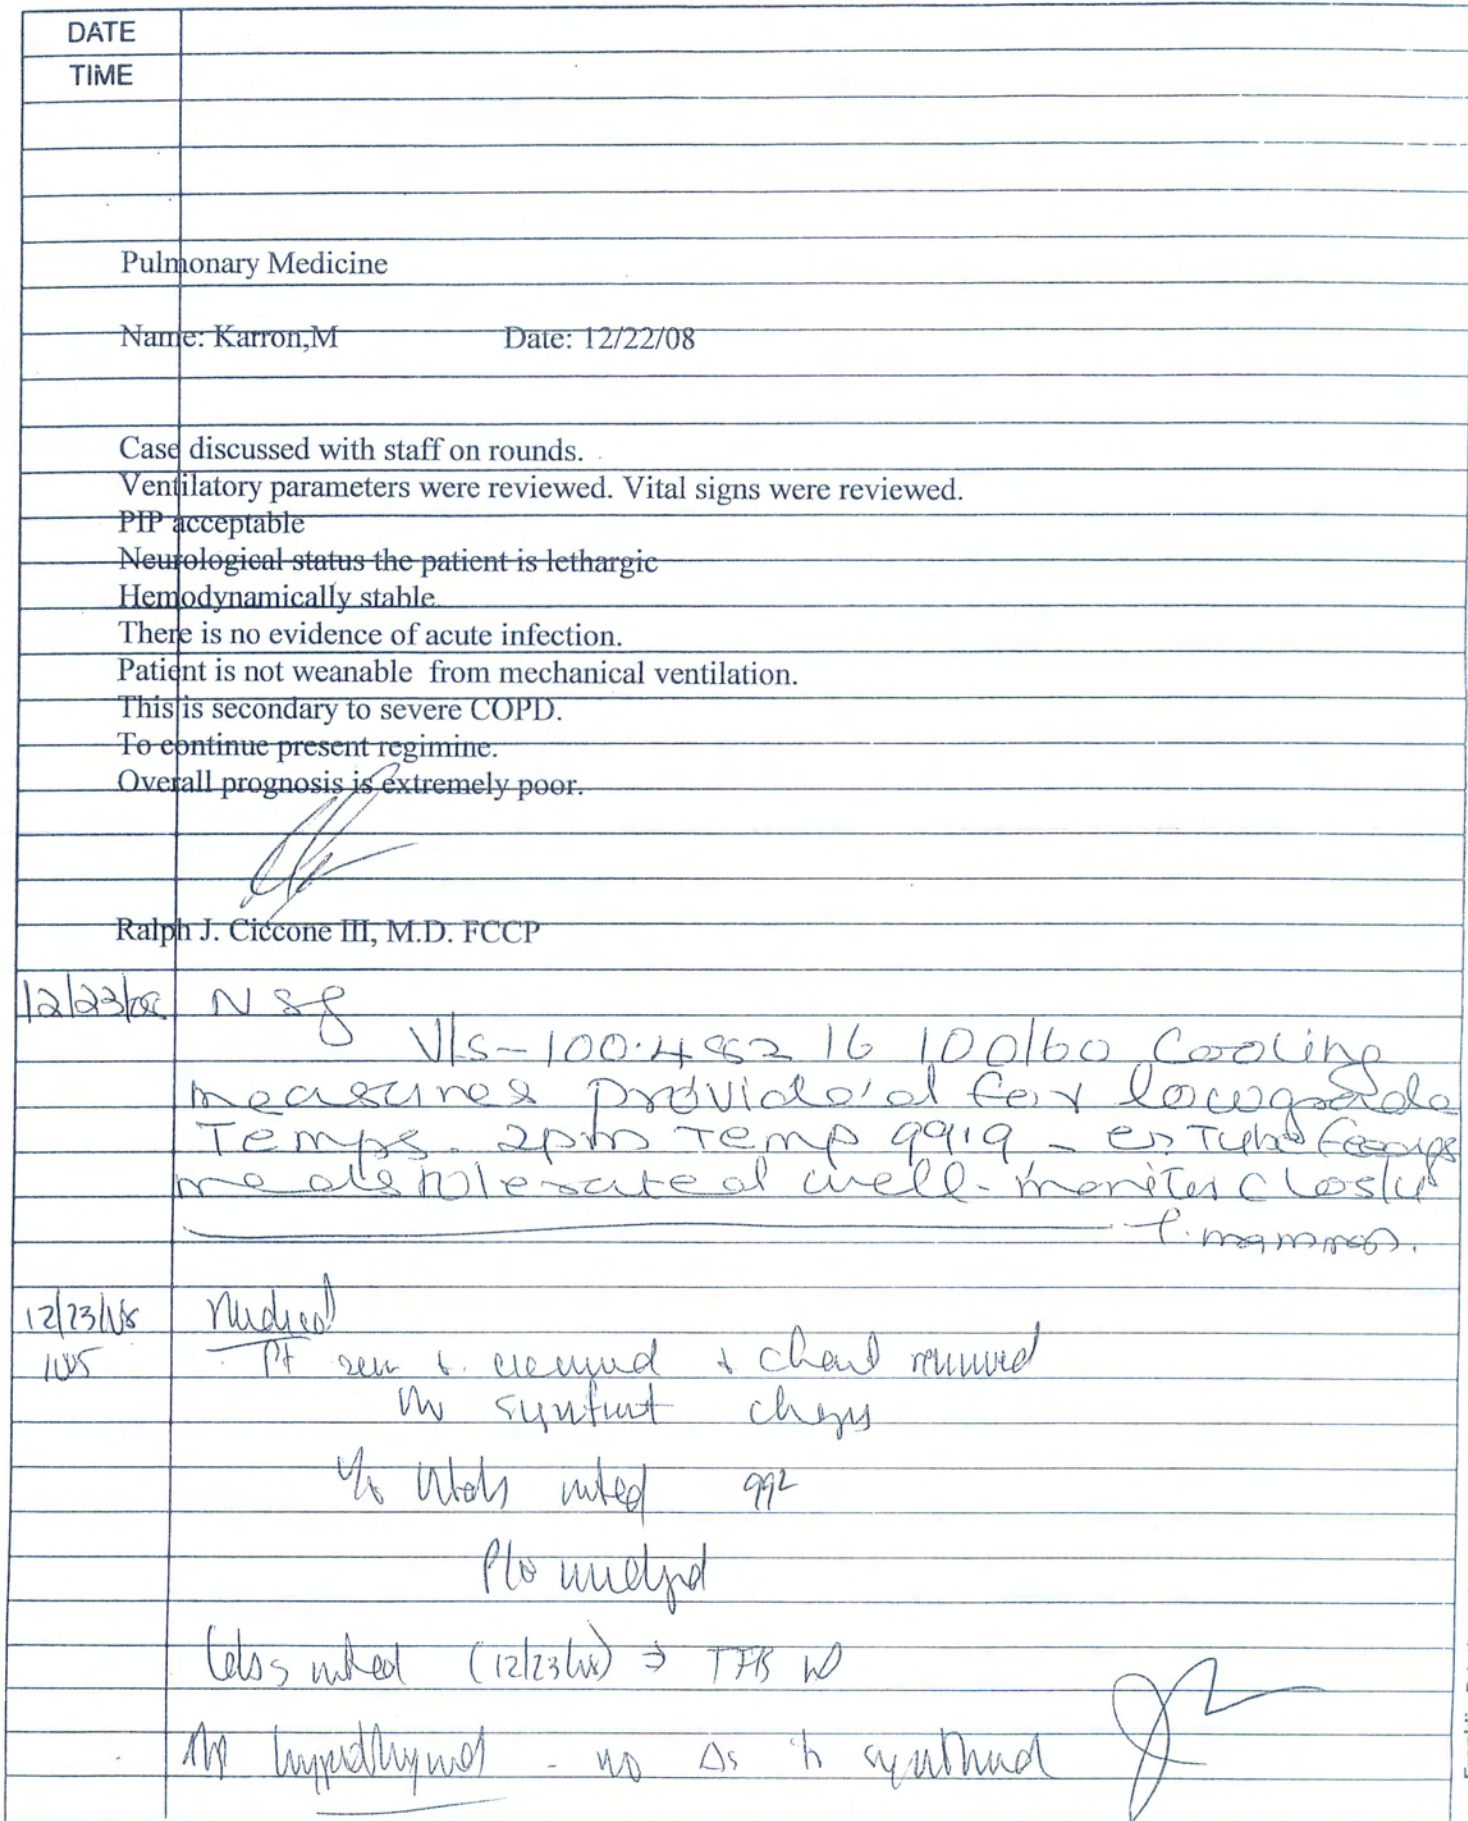 DATE
TIME
Pulmonary Medicine
Name: Karron,M Date: 12/22/08
Case discussed with staff on rounds.
Ventilatory parameters were reviewed. Vital signs were reviewed.
PIP acceptable
Neurological status the patient is lethargic
Hemodynamically stable
There is no evidence of acute infection.
Patient is not weanable from mechanical ventilation.
This is secondary to severe COPD.
To continue present regimine.
Overall prognosis is extremely poor.
Ralph J. Ciccone III, M.D. FCCP
12/23/08 Nsg
V/s-100.4 82 16 100/60 Cooling
measures provided for lowgrade
Temps. 2pm Temp 99.9
meds tolerated well. monitor closely
12/23/08 Medical
Pt seen & examined & chart reviewed
No chgs
Vitals noted 99²
Labs noted (12/23/08) → TFTs
hypothyroid - no Δs in synthroid